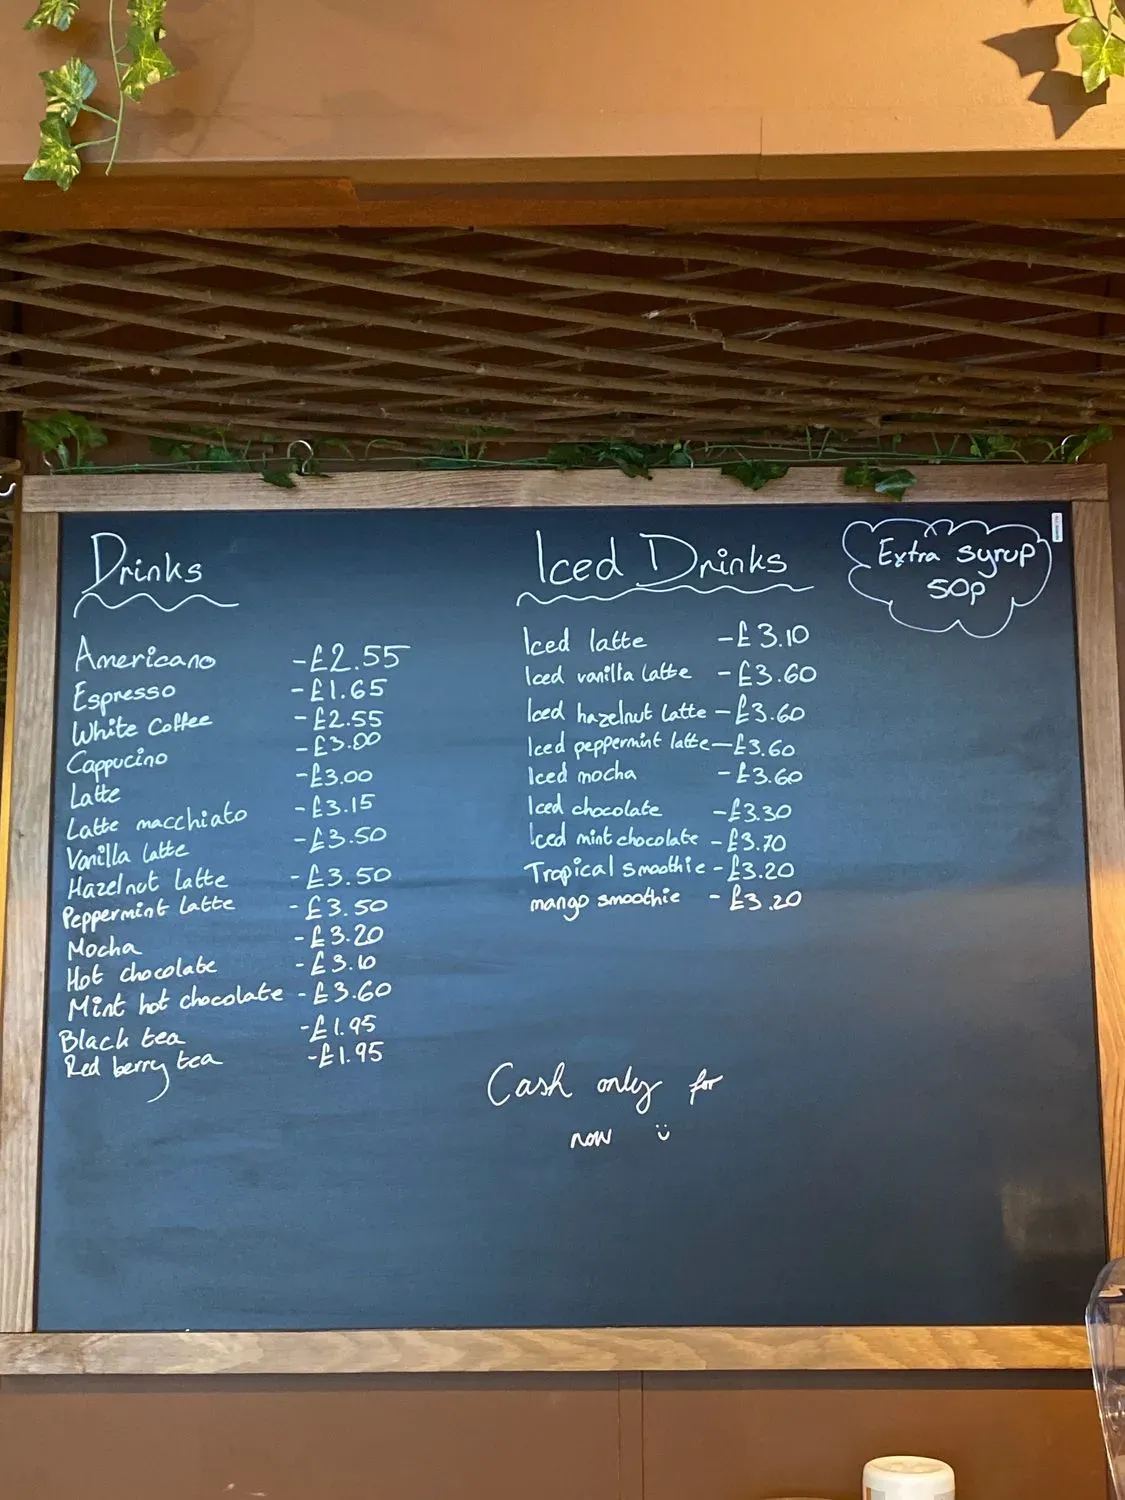 Drinks
Americano -£2.55
Espresso -£1.65
White Coffee -£2.55
Cappucino -£3.00
Latte -£3.00
Latte macchiato -£3.15
Vanilla latte -£3.50
Hazelnut latte -£3.50
Peppermint latte -£3.50
Mocha -£3.20
Hot chocolate -£3.10
Mint hot chocolate -£3.60
Black tea -£1.95
Red berry tea -£1.95
Iced Drinks
Iced latte -£3.10
Iced vanilla latte -£3.60
Iced hazelnut latte -£3.60
Iced peppermint latte -£3.60
Iced mocha -£3.60
Iced chocolate -£3.30
Iced mint chocolate -£3.70
Tropical smoothie -£3.20
mango smoothie -£3.20
Extra syrup
50p
Cash only for
now ü